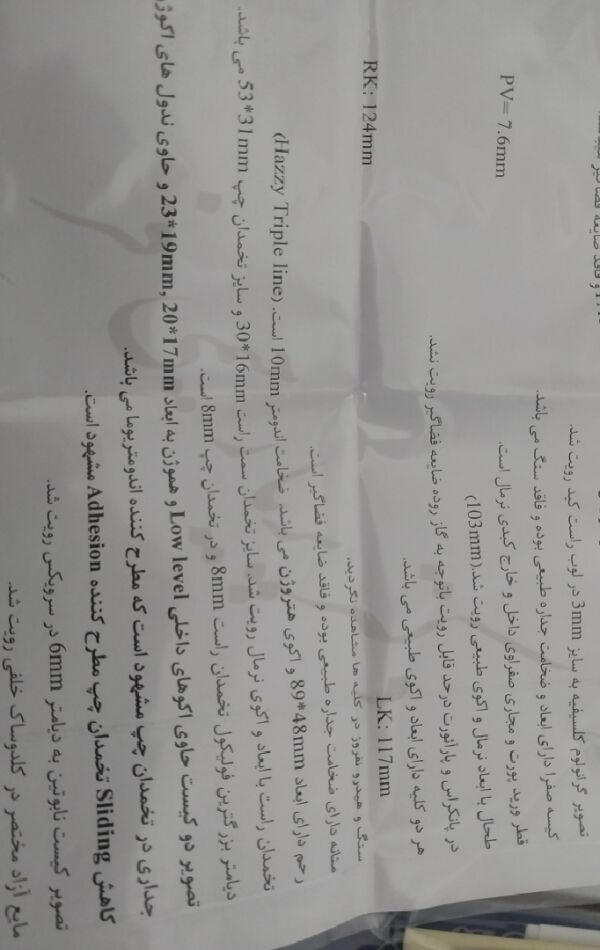 و فاقد ضایعه فضاگیر میباشد.
تصویر گرانولوم کلسیفیه به سایز 3mm در لوب راست کبد رویت شد.
کیسه صفرا دارای ابعاد و ضخامت جداره طبیعی بوده و فاقد سنگ می باشد.
قطر ورید پورت و مجاری صفراوی داخل و خارج کبدی نرمال است. PV= 7.6mm
طحال با ابعاد نرمال و اکوی طبیعی رویت شد.(103mm)
در پانکراس و پارائورت درحد قابل رویت باتوجه به گاز روده ضایعه فضاگیر رویت نشد.
هر دو کلیه دارای ابعاد و اکوی طبیعی می باشد.
LK: 117mm RK: 124mm
سنگ و هیدرو نفروز در کلیه ها مشاهده نگردید.
مثانه دارای ضخامت جداره طبیعی بوده و فاقد ضایعه فضاگیر است.
رحم دارای ابعاد 89*48mm و اکوی هتروژن می باشد. ضخامت اندومتر 10mm است. (Hazzy Triple line)
تخمدان راست با ابعاد و اکوی نرمال رویت شد. سایز تخمدان سمت راست 30*16mm و سایز تخمدان چپ 53*31mm می باشد.
دیامتر بزرگترین فولیکول تخمدان راست 8mm و در تخمدان چپ 8mm است.
تصویر دو کیست حاوی اکوهای داخلی Low level و هموژن به ابعاد 23*19mm, 20*17mm و حاوی ندول های
جداری در تخمدان چپ مشهود است که مطرح کننده اندومتریوما می باشد.
کاهش Sliding تخمدان چپ مطرح کننده Adhesion مشهود است.
تصویر کیست نابوتین به دیامتر 6mm در سرویکس رویت شد.
مایع آزاد مختصر در کلدوساک خلفی رویت شد.